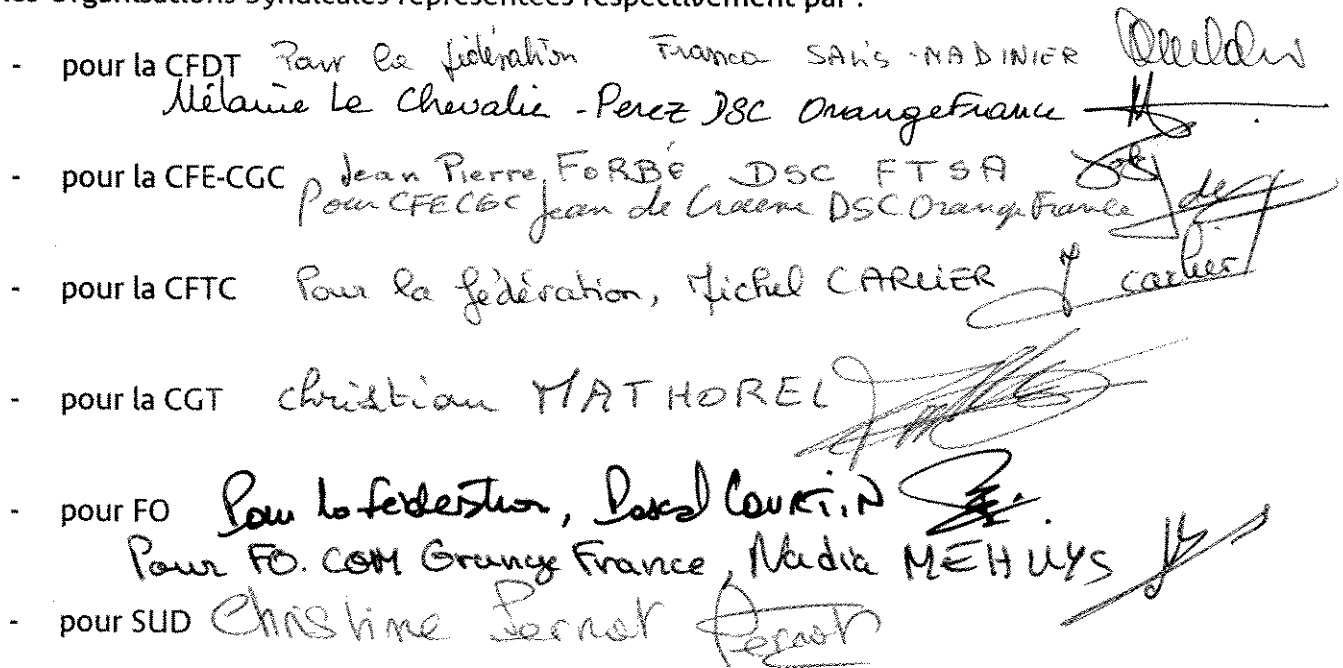 les Organisations Syndicales représentées respectivement par :
- pour la CFDT Pour la fédération Franca SALIS-MADINIER
Mélanie Le Chevalier-Perez DSC OrangeFrance
- pour la CFE-CGC Jean Pierre FORBÉ DSC FTSA
Pour CFECGC Jean de DSC Orange France
- pour la CFTC Pour la fédération, Michel CARLIER carlier
- pour la CGT Christian MATHOREL
- pour FO Pour la federation, Pascal COURTIN
Pour FO.COM Orange France, Nadia MEHUYS
- pour SUD Christine Pernot Pernot